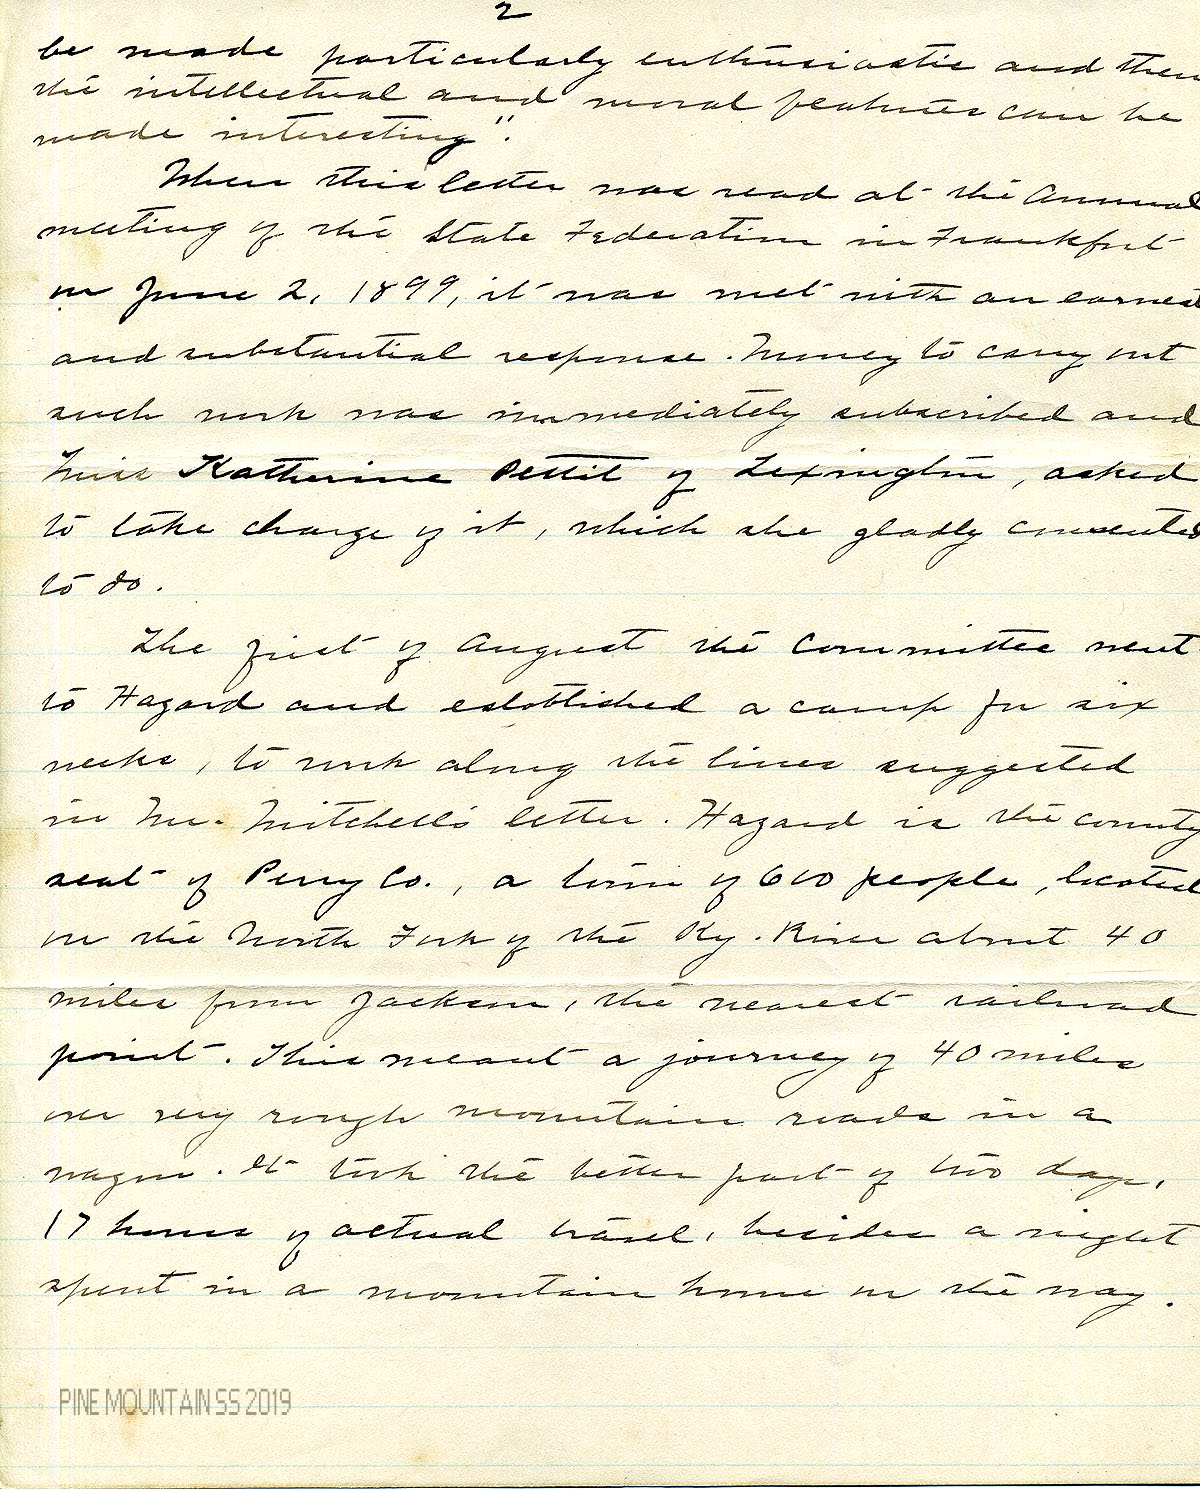 2
be made particularly enthusiastic and then
the intellectual and moral features can be
made interesting".
When this letter was read at the Annual
meeting of the State Federation in Frankfort
on June 2, 1899, it was met with an earnest
and substantial response. Money to carry out
such work was immediately subscribed and
Miss Katherine Pettit of Lexington, asked
to take charge of it, which she gladly consented
to do.
The first of August the Committee went
to Hazard and established a camp for six
weeks, to work along the lines suggested
in Mr. Mitchell's letter. Hazard is the county
seat of Perry Co., a town of 600 people, located
on the North Fork of the Ky. River about 40
miles from Jackson, the nearest railroad
point. This meant a journey of 40 miles
over very rough mountain roads in a
wagon. It took the better part of two days,
17 hours of actual travel, besides a night
spent in a mountain home on the way.
PINE MOUNTAIN SS 2019